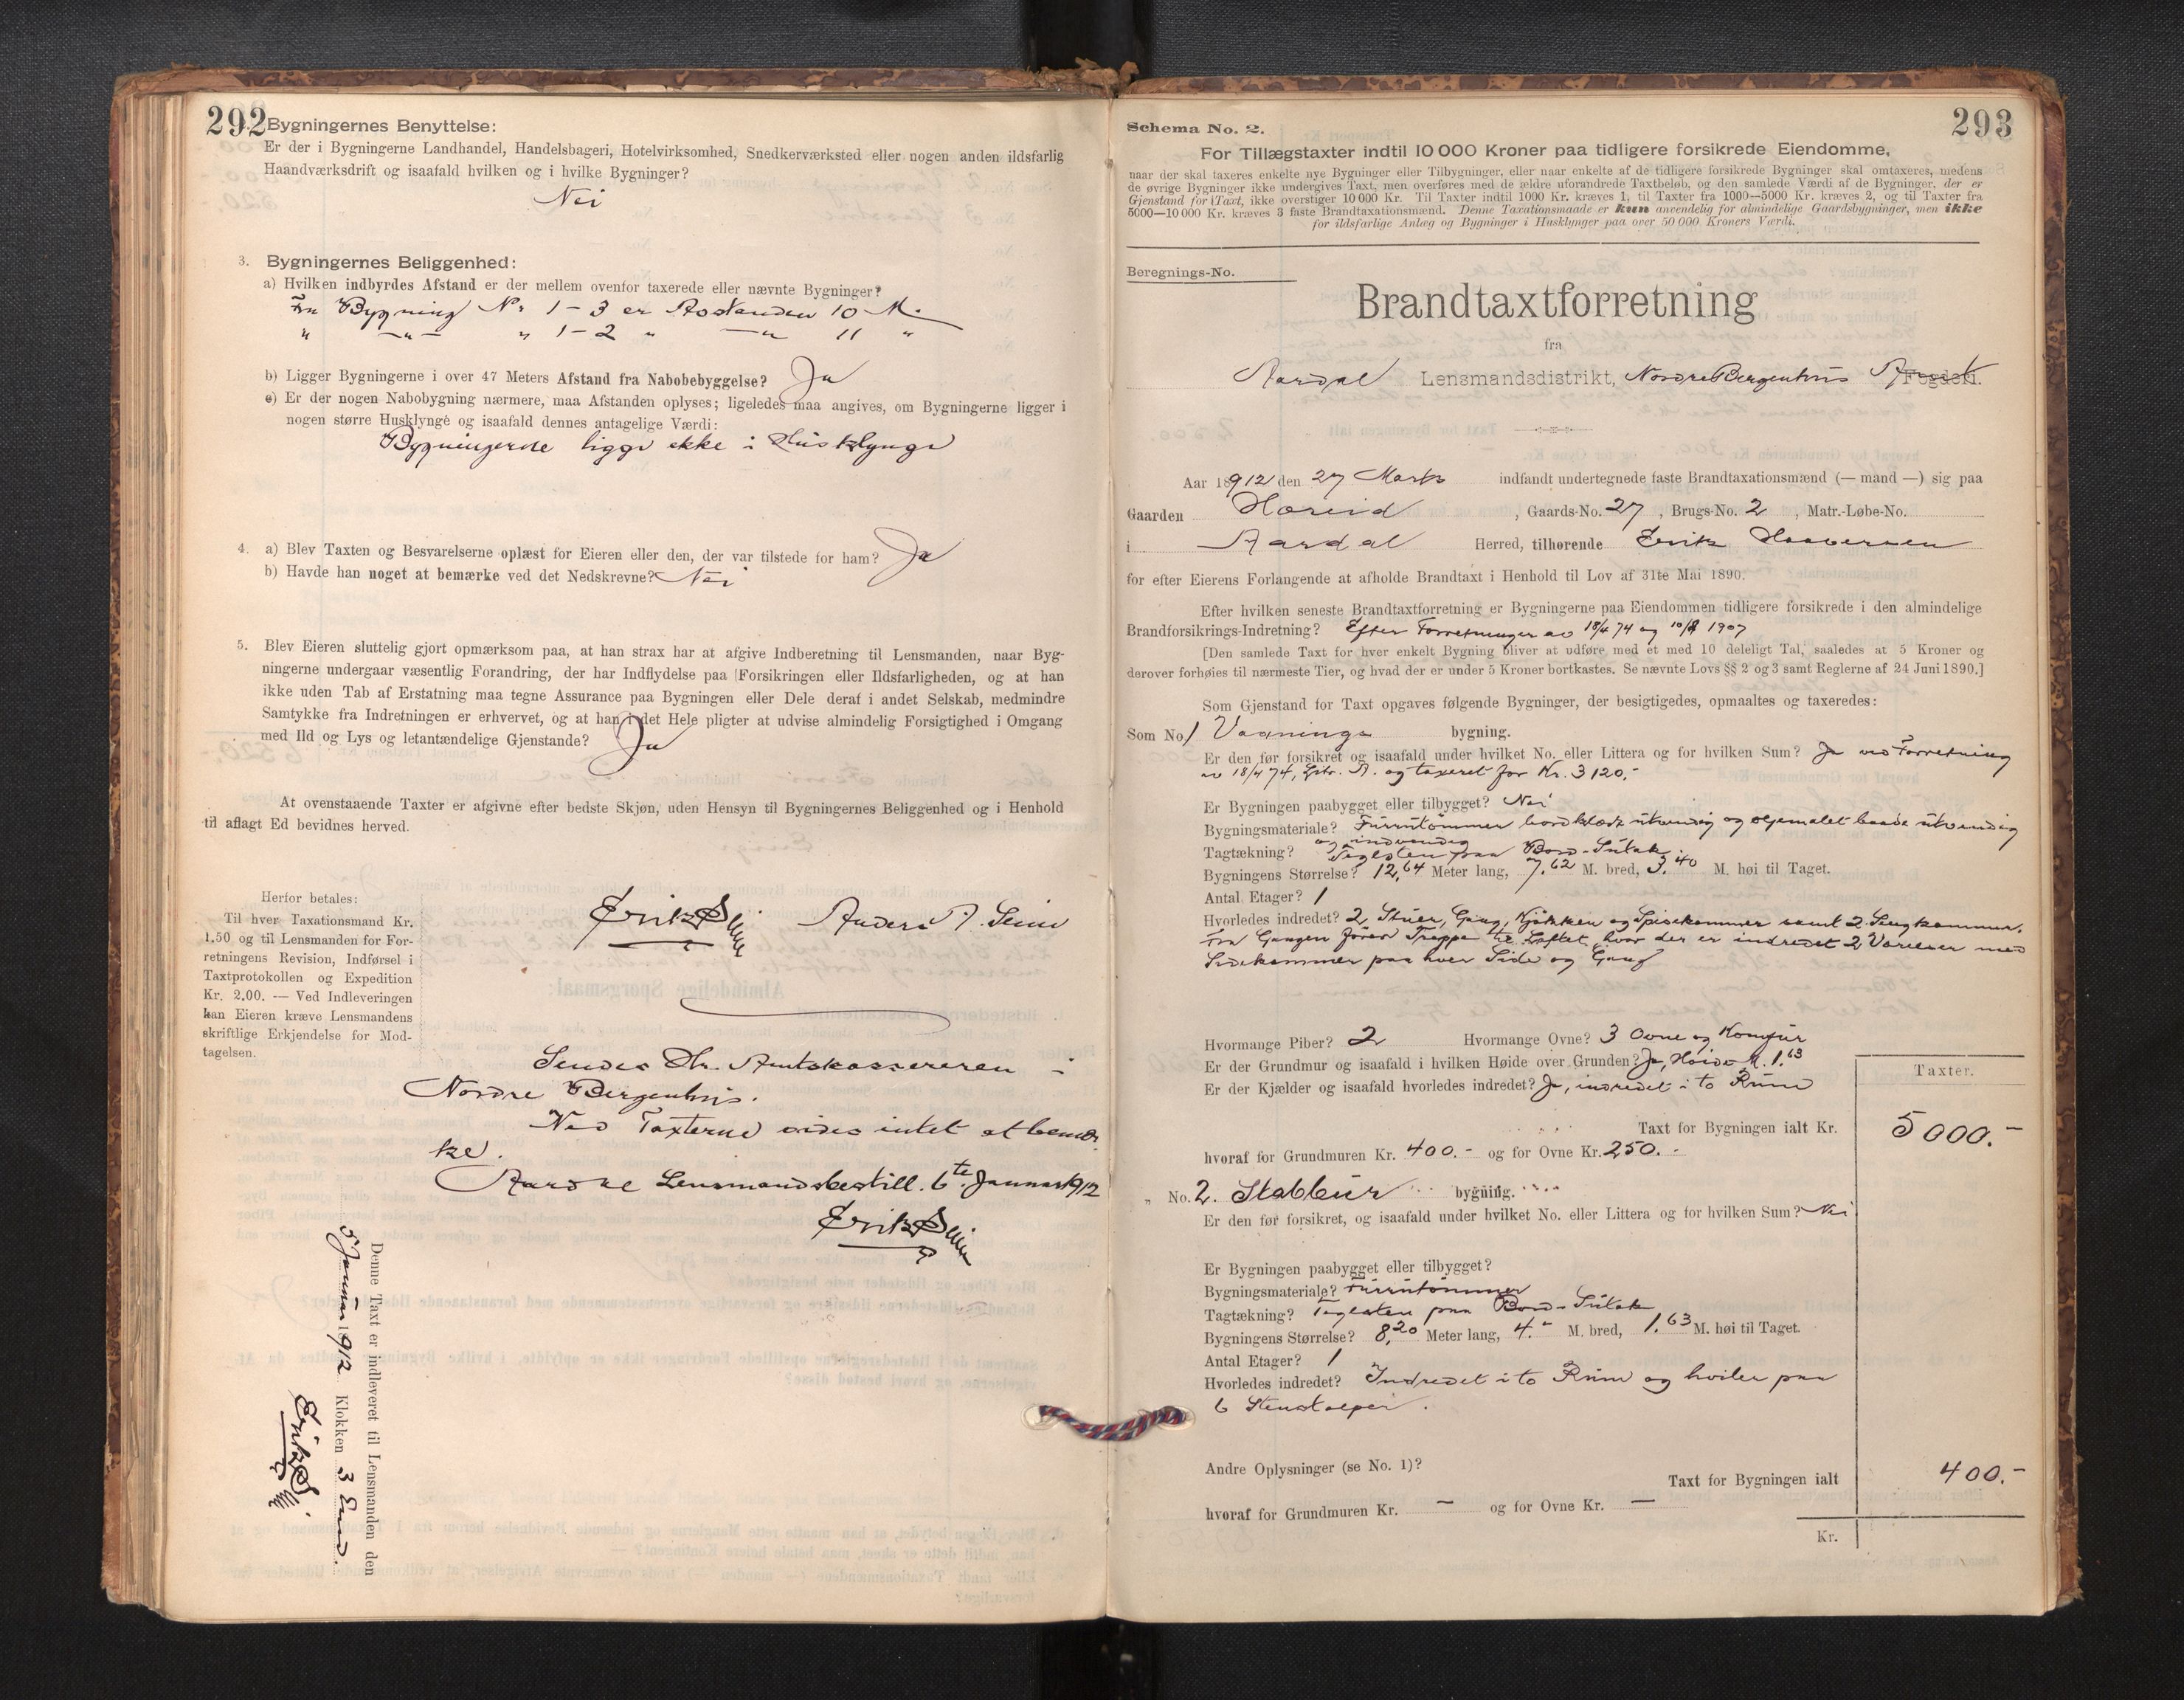 292
Bygningernes Benyttelse:
Er der i Bygningerne Landhandel, Handelsbageri, Hotelvirksomhed, Snedkerværksted eller nogen anden ildsfarlig
Haandværksdrift og isaafald hvilken og i hvilke Bygninger?
Nei
3. Bygningernes Beliggenhed:
a) Hvilken indbyrdes Afstand er der mellem ovenfor taxerede eller nævnte Bygninger?
Fra Bygning Nr 1 - 3 er Avstanden 10 M.
" -"- " 1 - 2 " -"- 11 "
b) Ligger Bygningerne i over 47 Meters Afstand fra Nabobebyggelse? Ja
c) Er der nogen Nabobygning nærmere, maa Afstanden oplyses; ligeledes maa angives, om Bygningerne ligger i
nogen større Husklynge og isaafald dennes antagelige Værdi:
Bygningerne ligge ikke i Husklynge
4. a) Blev Taxten og Besvarelserne oplæst for Eieren eller den, der var tilstede for ham? Ja
b) Havde han noget at bemærke ved det Nedskrevne? Nei
5. Blev Eieren sluttelig gjort opmærksom paa, at han strax har at afgive Indberetning til Lensmanden, naar Byg-
ningerne undergaar væsentlig Forandring, der har Indflydelse paa Forsikringen eller Ildsfarligheden, og at han
ikke uden Tab af Erstatning maa tegne Assurance paa Bygningen eller Dele deraf i andet Selskab, medmindre
Samtykke fra Indretningen er erhvervet, og at han i det Hele pligter at udvise almindelig Forsigtighed i Omgang
med Ild og Lys og letantændelige Gjenstande? Ja
At ovenstaaende Taxter er afgivne efter bedste Skjøn, uden Hensyn til Bygningernes Beliggenhed og i Henhold
til aflagt Ed bevidnes herved.
Erik Seim Anders A. Seim
Herfor betales:
Til hver Taxationsmand Kr.
1.50 og til Lensmanden for For-
retningens Revision, Indførsel i
Taxtprotokollen og Expedition
Kr. 2.00. — Ved Indleveringen
kan Eieren kræve Lensmandens
skriftlige Erkjendelse for Mod-
tagelsen.
Sendes Hr. Amtskassereren i
Nordre Bergenhus.
Ved Taxterne vides intet at bemær-
ke.
Aardal Lensmandsbestill. 6te Januar 1912
Erik Seim
Denne Taxt er indleveret til Lensmanden den
5 Januar 1912 Klokken 3 Em.
Erik Seim
293
Schema No. 2.
For Tillægstaxter indtil 10 000 Kroner paa tidligere forsikrede Eiendomme,
naar der skal taxeres enkelte nye Bygninger eller Tilbygninger, eller naar enkelte af de tidligere forsikrede Bygninger skal omtaxeres, medens
de øvrige Bygninger ikke undergives Taxt, men overføres med de ældre uforandrede Taxtbeløb, og den samlede Værdi af de Bygninger, der er
Gjenstand for Taxt, ikke overstiger 10 000 Kr. Til Taxter indtil 1000 Kr. kræves 1, til Taxter fra 1000—5000 Kr. kræves 2, og til Taxter fra
5000—10 000 Kr. kræves 3 faste Brandtaxationsmænd. Denne Taxationsmaade er kun anvendelig for almindelige Gaardsbygninger, men ikke
for ildsfarlige Anlæg og Bygninger i Husklynger paa over 50 000 Kroners Værdi.
Beregnings-No.
Brandtaxtforretning
fra
Aardal Lensmandsdistrikt, Nordre Bergenhus Amt Fogderi.
Aar 1912 den 27 Marts indfandt undertegnede faste Brandtaxationsmænd (— mand —) sig paa
Gaarden Horeid, Gaards-No. 27, Brugs-No. 2, Matr.-Løbe-No.
i Aardal Herred, tilhørende Erik Haaversen
for efter Eierens Forlangende at afholde Brandtaxt i Henhold til Lov af 31te Mai 1890.
Efter hvilken seneste Brandtaxtforretning er Bygningerne paa Eiendommen tidligere forsikrede i den almindelige
Brandforsikrings-Indretning? Efter Forretninger av 18/4 74 og 10/8 1907
[Den samlede Taxt for hver enkelt Bygning bliver at udføre med et med 10 deleligt Tal, saaledes at 5 Kroner og
derover forhøies til nærmeste Tier, og hvad der er under 5 Kroner bortkastes. Se nævnte Lovs §§ 2 og 3 samt Reglerne af 24 Juni 1890.]
Som Gjenstand for Taxt opgaves følgende Bygninger, der besigtigedes, opmaaltes og taxeredes:
Som No. 1 Vaanings bygning.
Er den før forsikret og isaafald under hvilket No. eller Littera og for hvilken Sum? Ja ved Forretning
av 18/4 74, Litr. A. og taxeret for Kr. 3120,-
Er Bygningen paabygget eller tilbygget? Nei
Bygningsmateriale? Furutømmer bordklædt utvendig og oljemalet baade utvendig
og indvendig
Tagtækning? Teglsten paa Bord-Sutak
Bygningens Størrelse? 12,64 Meter lang, 7,62 M. bred, 3,40 M. høi til Taget.
Antal Etager? 1
Hvorledes indredet? 2 Stuer, Gang, Kjøkken og Spisekammer samt 2 Sengkammer.
Fra Gangen fører Trappe til Loftet, hvor der er indredet 2 Værelser med
Sidekammer paa hver Side og Gang
Hvormange Piber? 2 Hvormange Ovne? 3 Ovne og Komfur
Er der Grundmur og isaafald i hvilken Høide over Grunden? Ja, Høide M. 1,63
Er der Kjælder og isaafald hvorledes indredet? Ja, indredet i to Rum
Taxter.
Taxt for Bygningen ialt Kr. 5000.-
hvoraf for Grundmuren Kr. 400.- og for Ovne Kr. 250.-
" No. 2. Stabbur bygning.
Er den før forsikret, og isaafald under hvilket No. eller Littera og for hvilken Sum? Nei
Er Bygningen paabygget eller tilbygget?
Bygningsmateriale? Furutømmer
Tagtækning? Teglsten paa Bord-Sutak
Bygningens Størrelse? 8,20 Meter lang, 4,- M. bred, 1,63 M. høi til Taget.
Antal Etager? 1
Hvorledes indredet? Indredet i to Rum og hviler paa
6 Stenstolper.
Andre Oplysninger (se No. 1)?
Taxt for Bygningen ialt 400.-
hvoraf for Grundmuren Kr. — og for Ovne Kr. —
Kr.